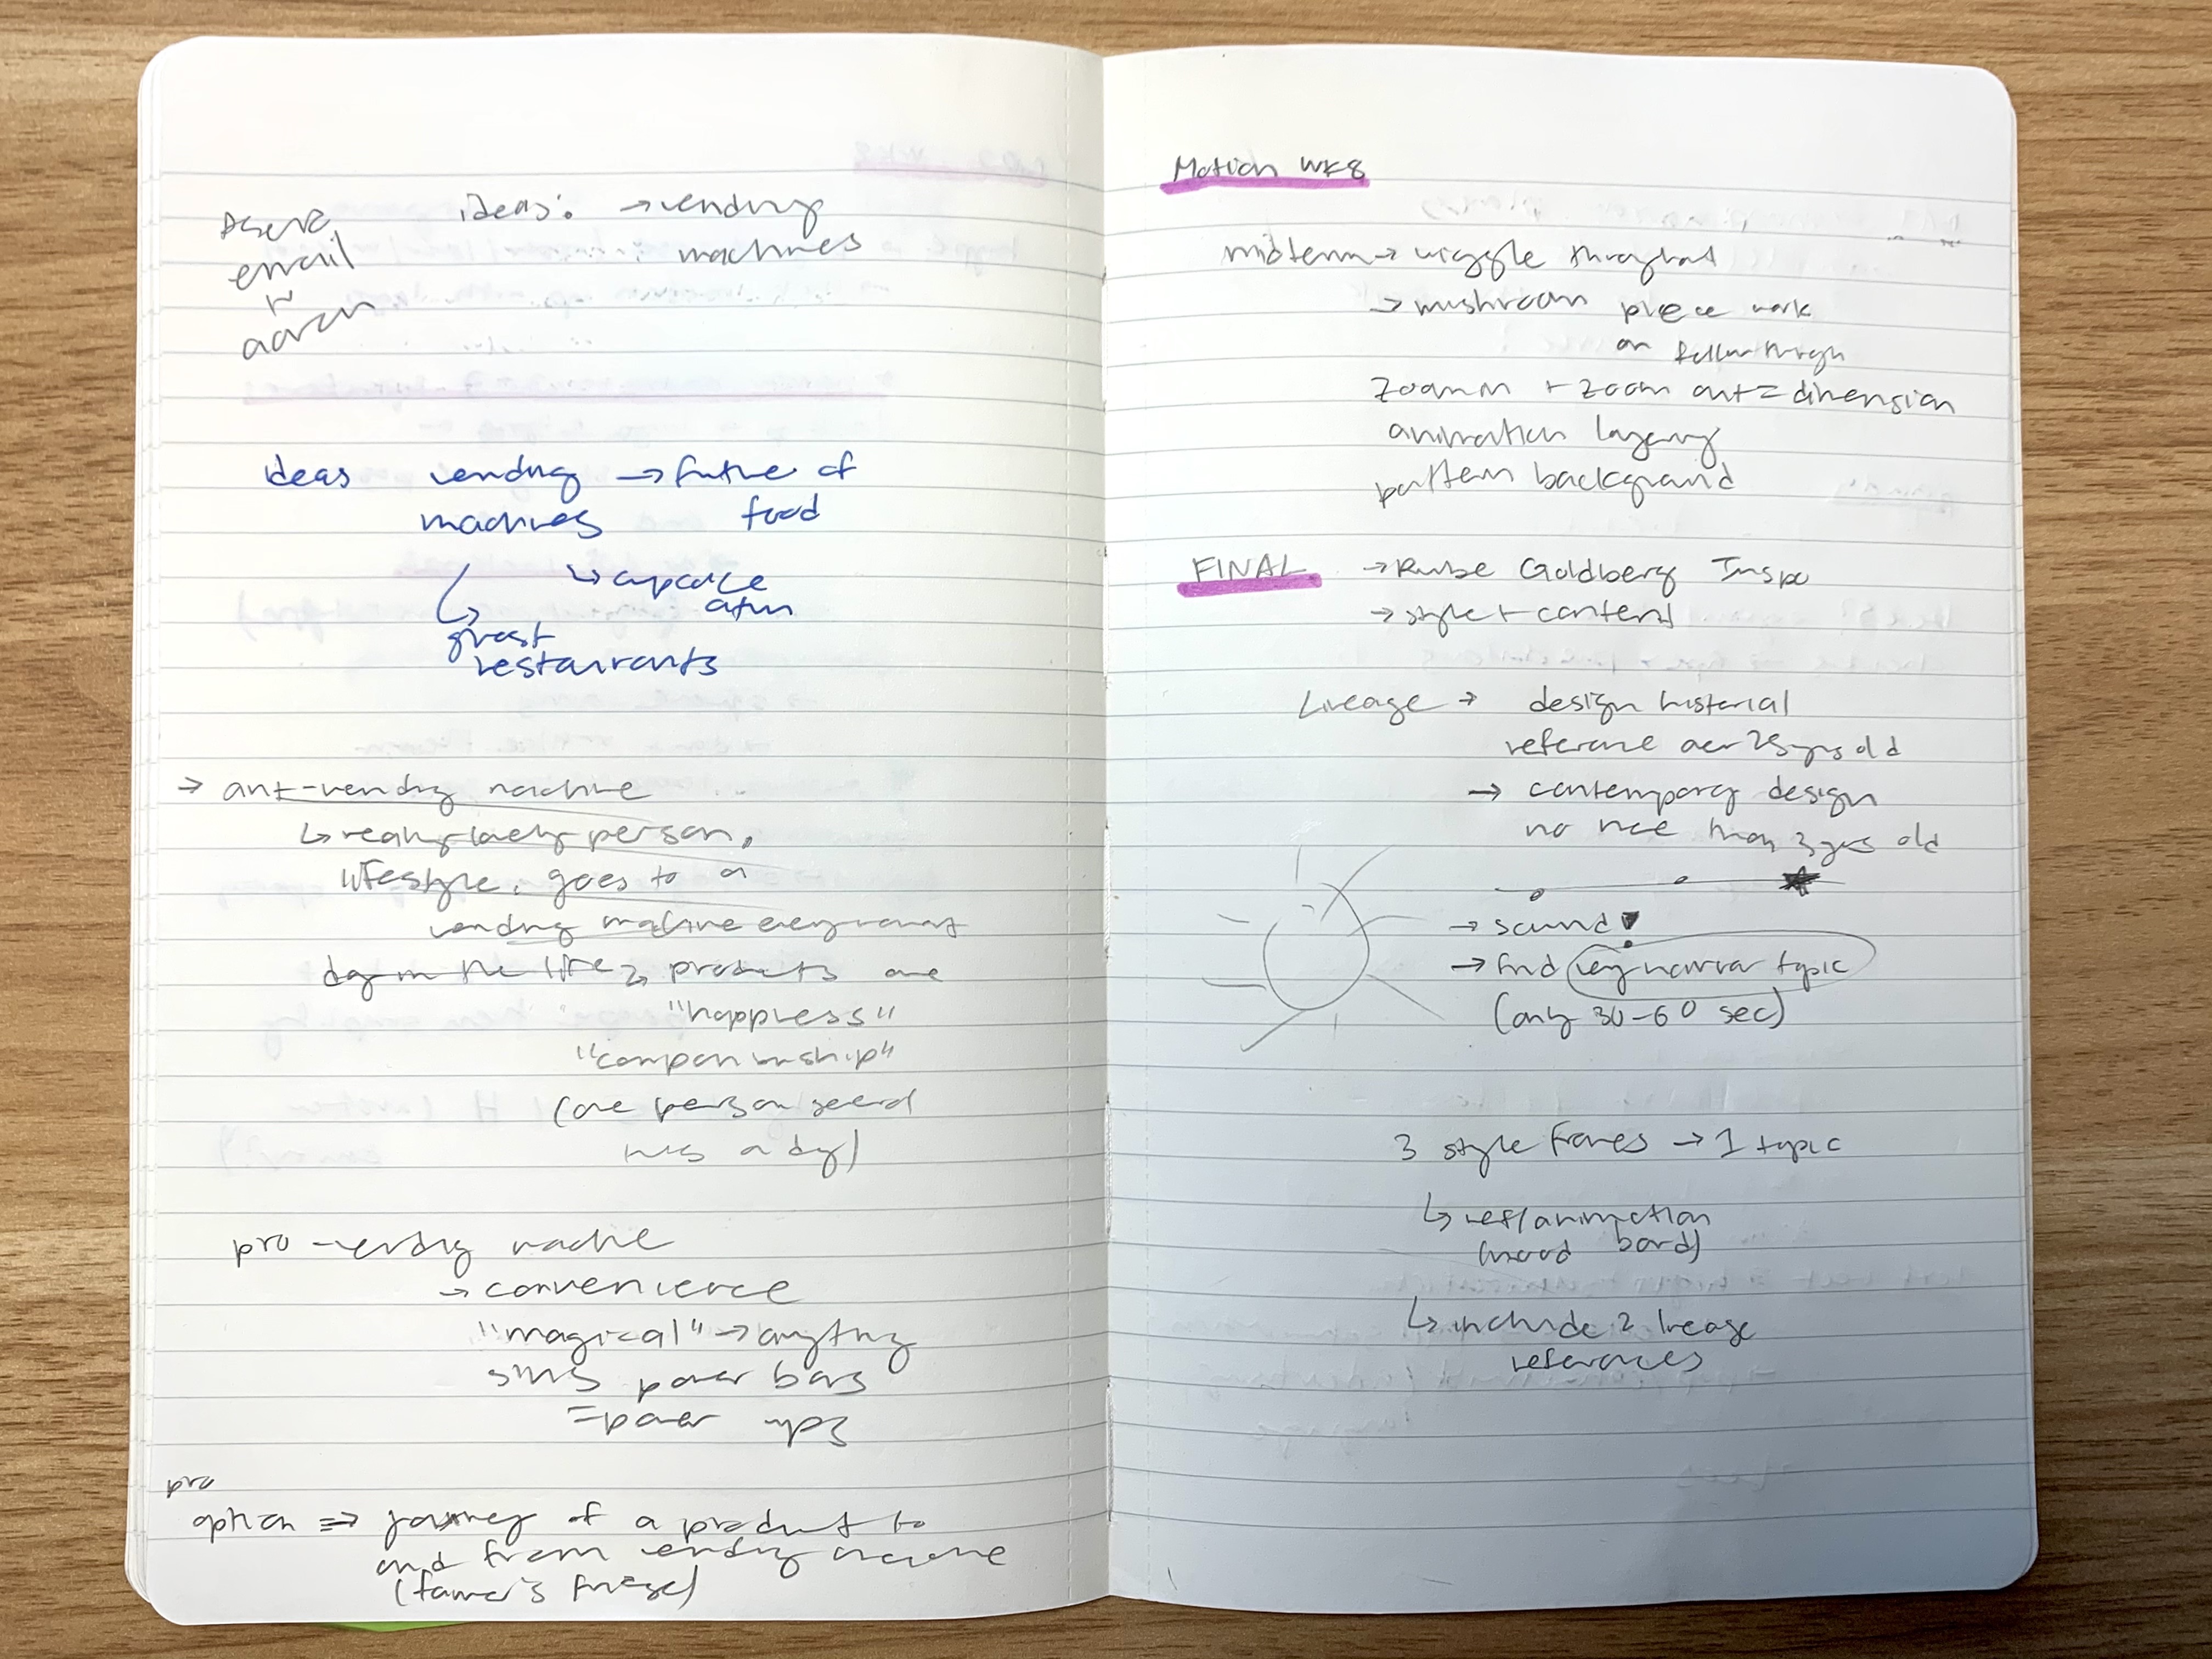 email
aaron
ideas: → vending
machines
ideas vending → future of
machines food
↳ cupcake
atm
ghost
restaurants
→ ant-vending machine
↳ really lonely person,
lifestyle, goes to a
vending machine
day in the life products are
"happiness"
"companionship"
(one person
a day)
pro-vending machine
→ convenience
"magical" → anything
power bars
= power ups
pro
option ⇒ journey of a product to
and from vending machine
(farmer's fridge)
Motion WK8
midterm → wiggle throughout
→ mushroom piece work
on follow through
zoom in + zoom out = dimension
animation layering
pattern background
FINAL → Rube Goldberg Inspo
→ style + content
Lineage → design historical
reference over 25 yrs old
→ contemporary design
no more than 3 yrs old
→ sound
→ find very narrow topic
(only 30-60 sec)
3 style frames → 1 topic
↳ ref/animation
(mood board)
↳ include 2 lineage
references